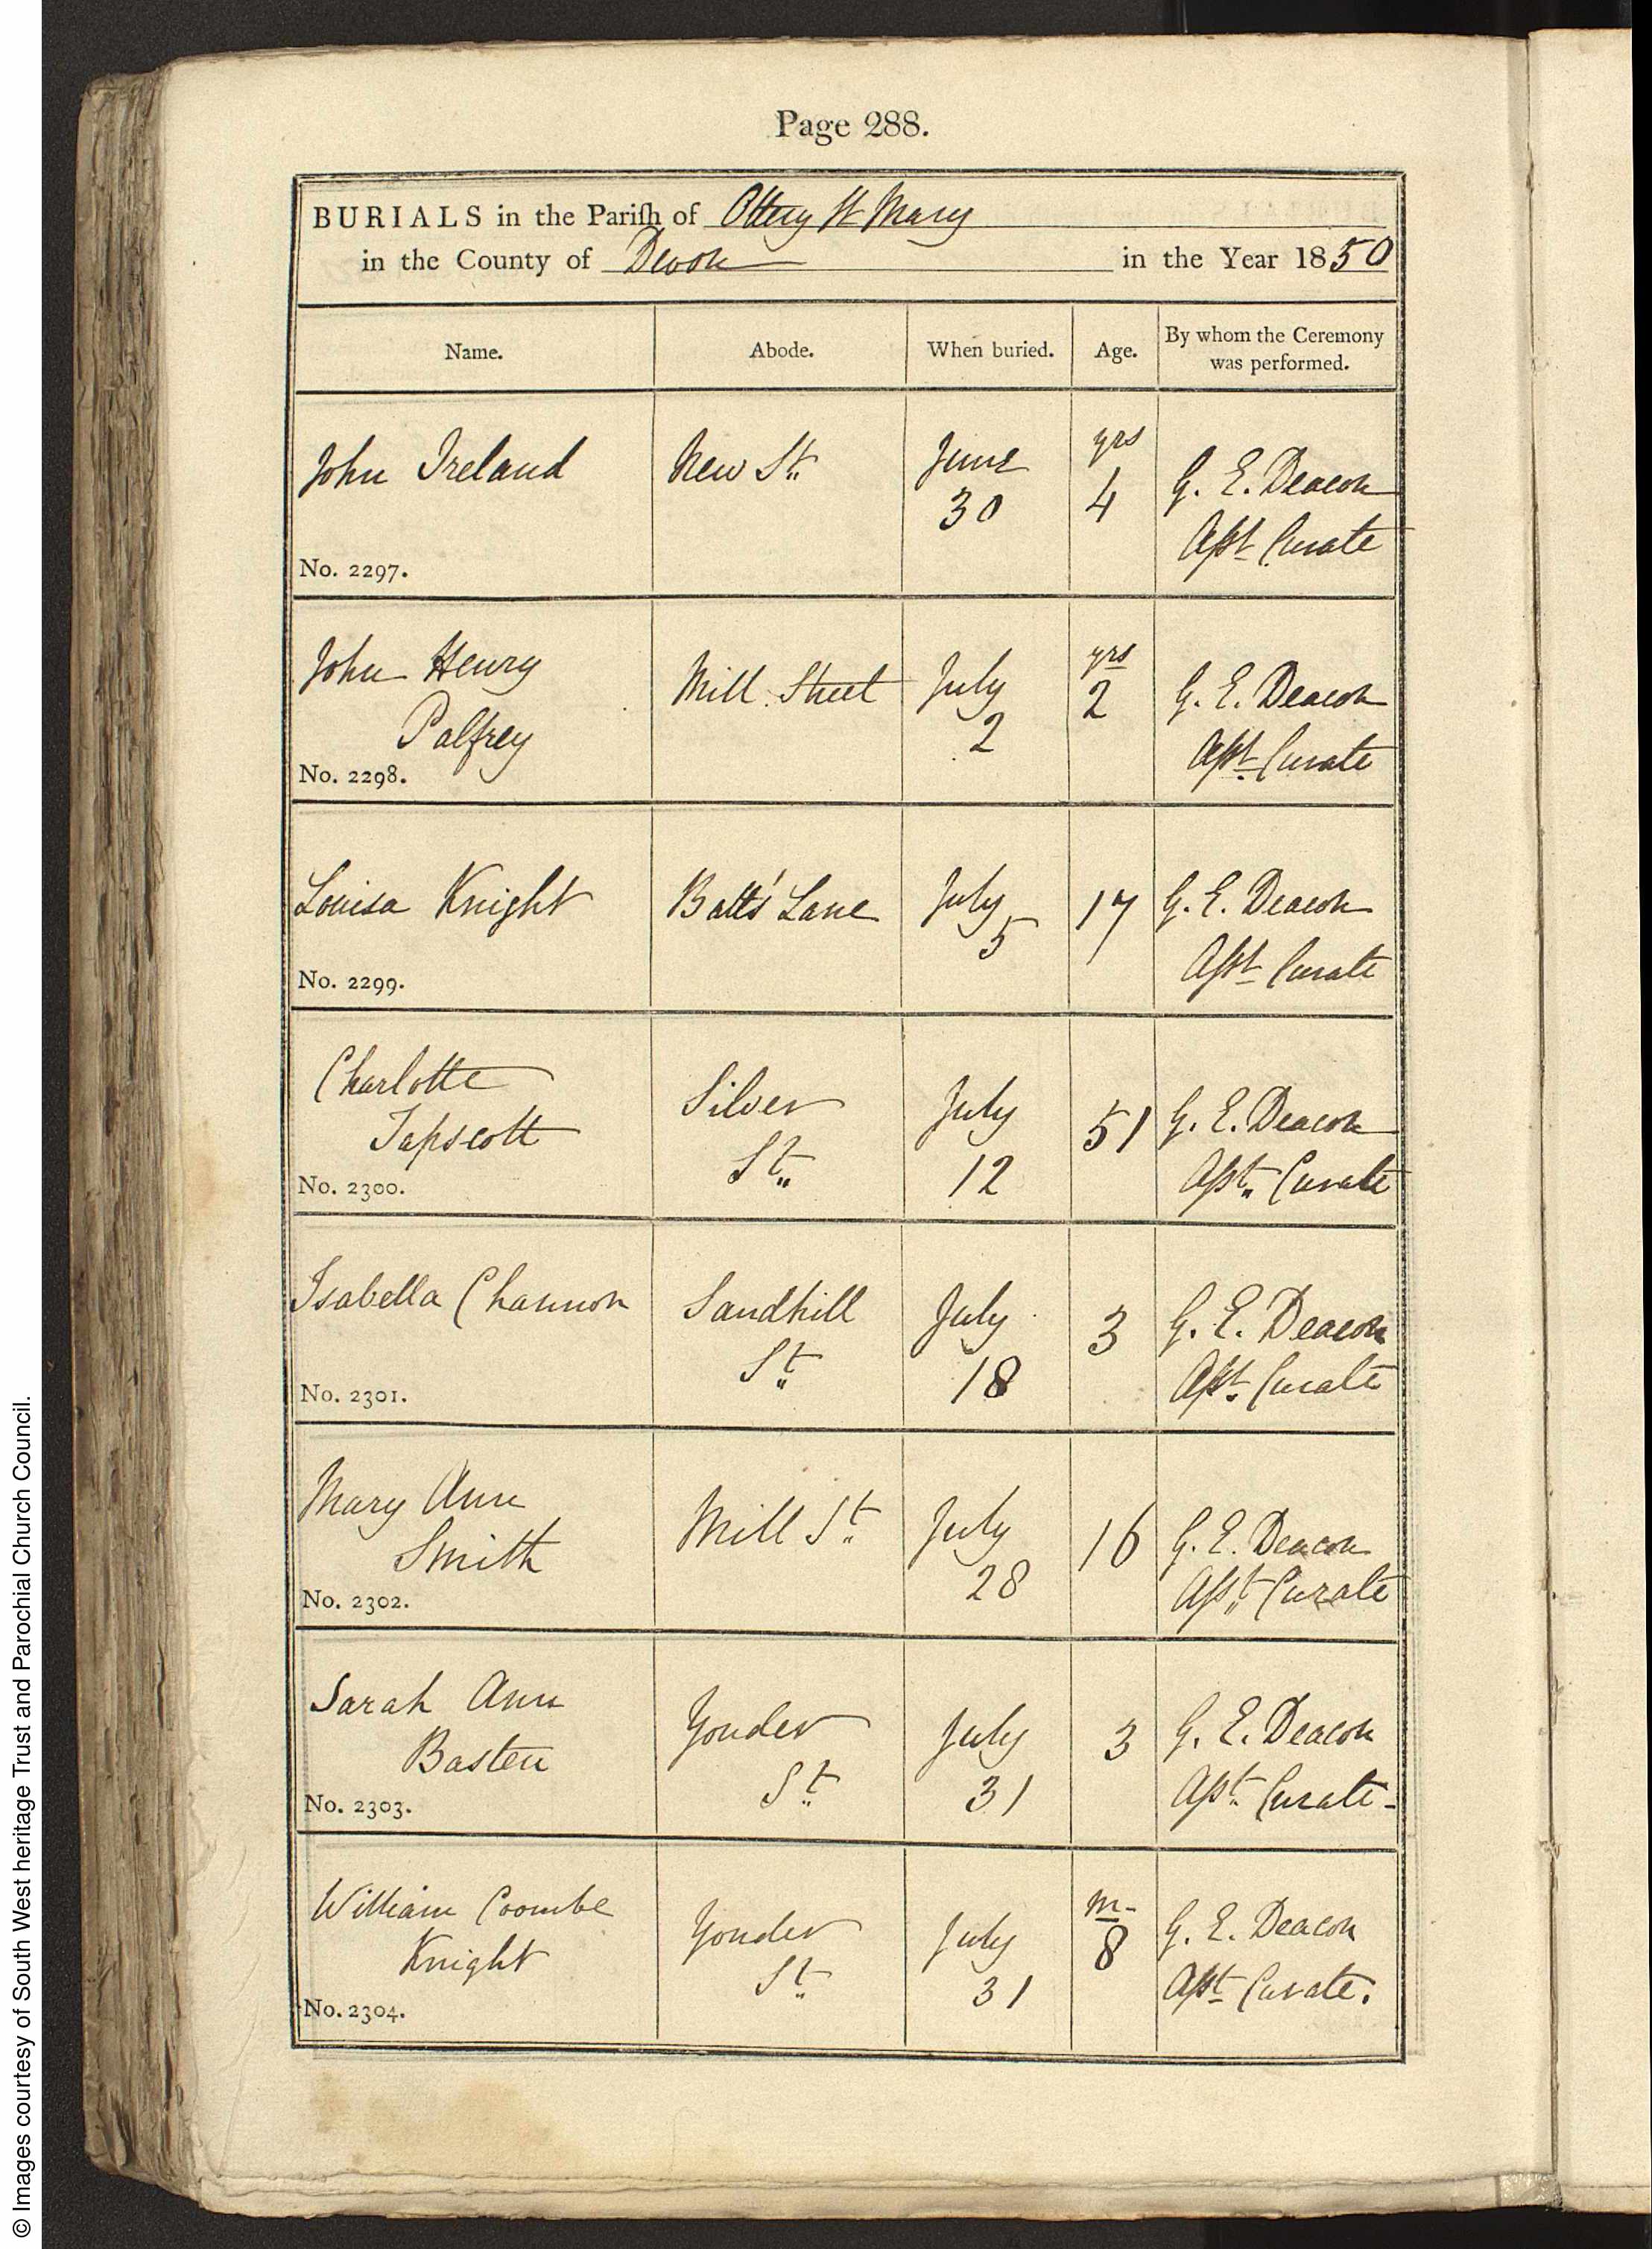 Page 288.
BURIALS in the Pariſh of Ottery St Mary
in the County of Devon in the Year 1850
Name. Abode. When buried. Age. By whom the Ceremony was performed.
John Ireland New St. June 30 yrs 4 G. E. Deacon Asst Curate
No. 2297.
John Henry Palfrey Mill Street July 2 yrs 2 G. E. Deacon Asst Curate
No. 2298.
Louisa Knight Batts' Lane July 5 17 G. E. Deacon Asst Curate
No. 2299.
Charlotte Tapscott Silver St. July 12 51 G. E. Deacon Asst. Curate
No. 2300.
Isabella Channon Sandhill St. July 18 3 G. E. Deacon Asst. Curate
No. 2301.
Mary Ann Smith Mill St. July 28 16 G. E. Deacon Asst. Curate
No. 2302.
Sarah Ann Basten Yonder St. July 31 3 G. E. Deacon Asst. Curate-
No. 2303.
William Coombe Knight Yonder St. July 31 m- 8 G. E. Deacon Asst Curate.
No. 2304.
© Images courtesy of South West heritage Trust and Parochial Church Council.